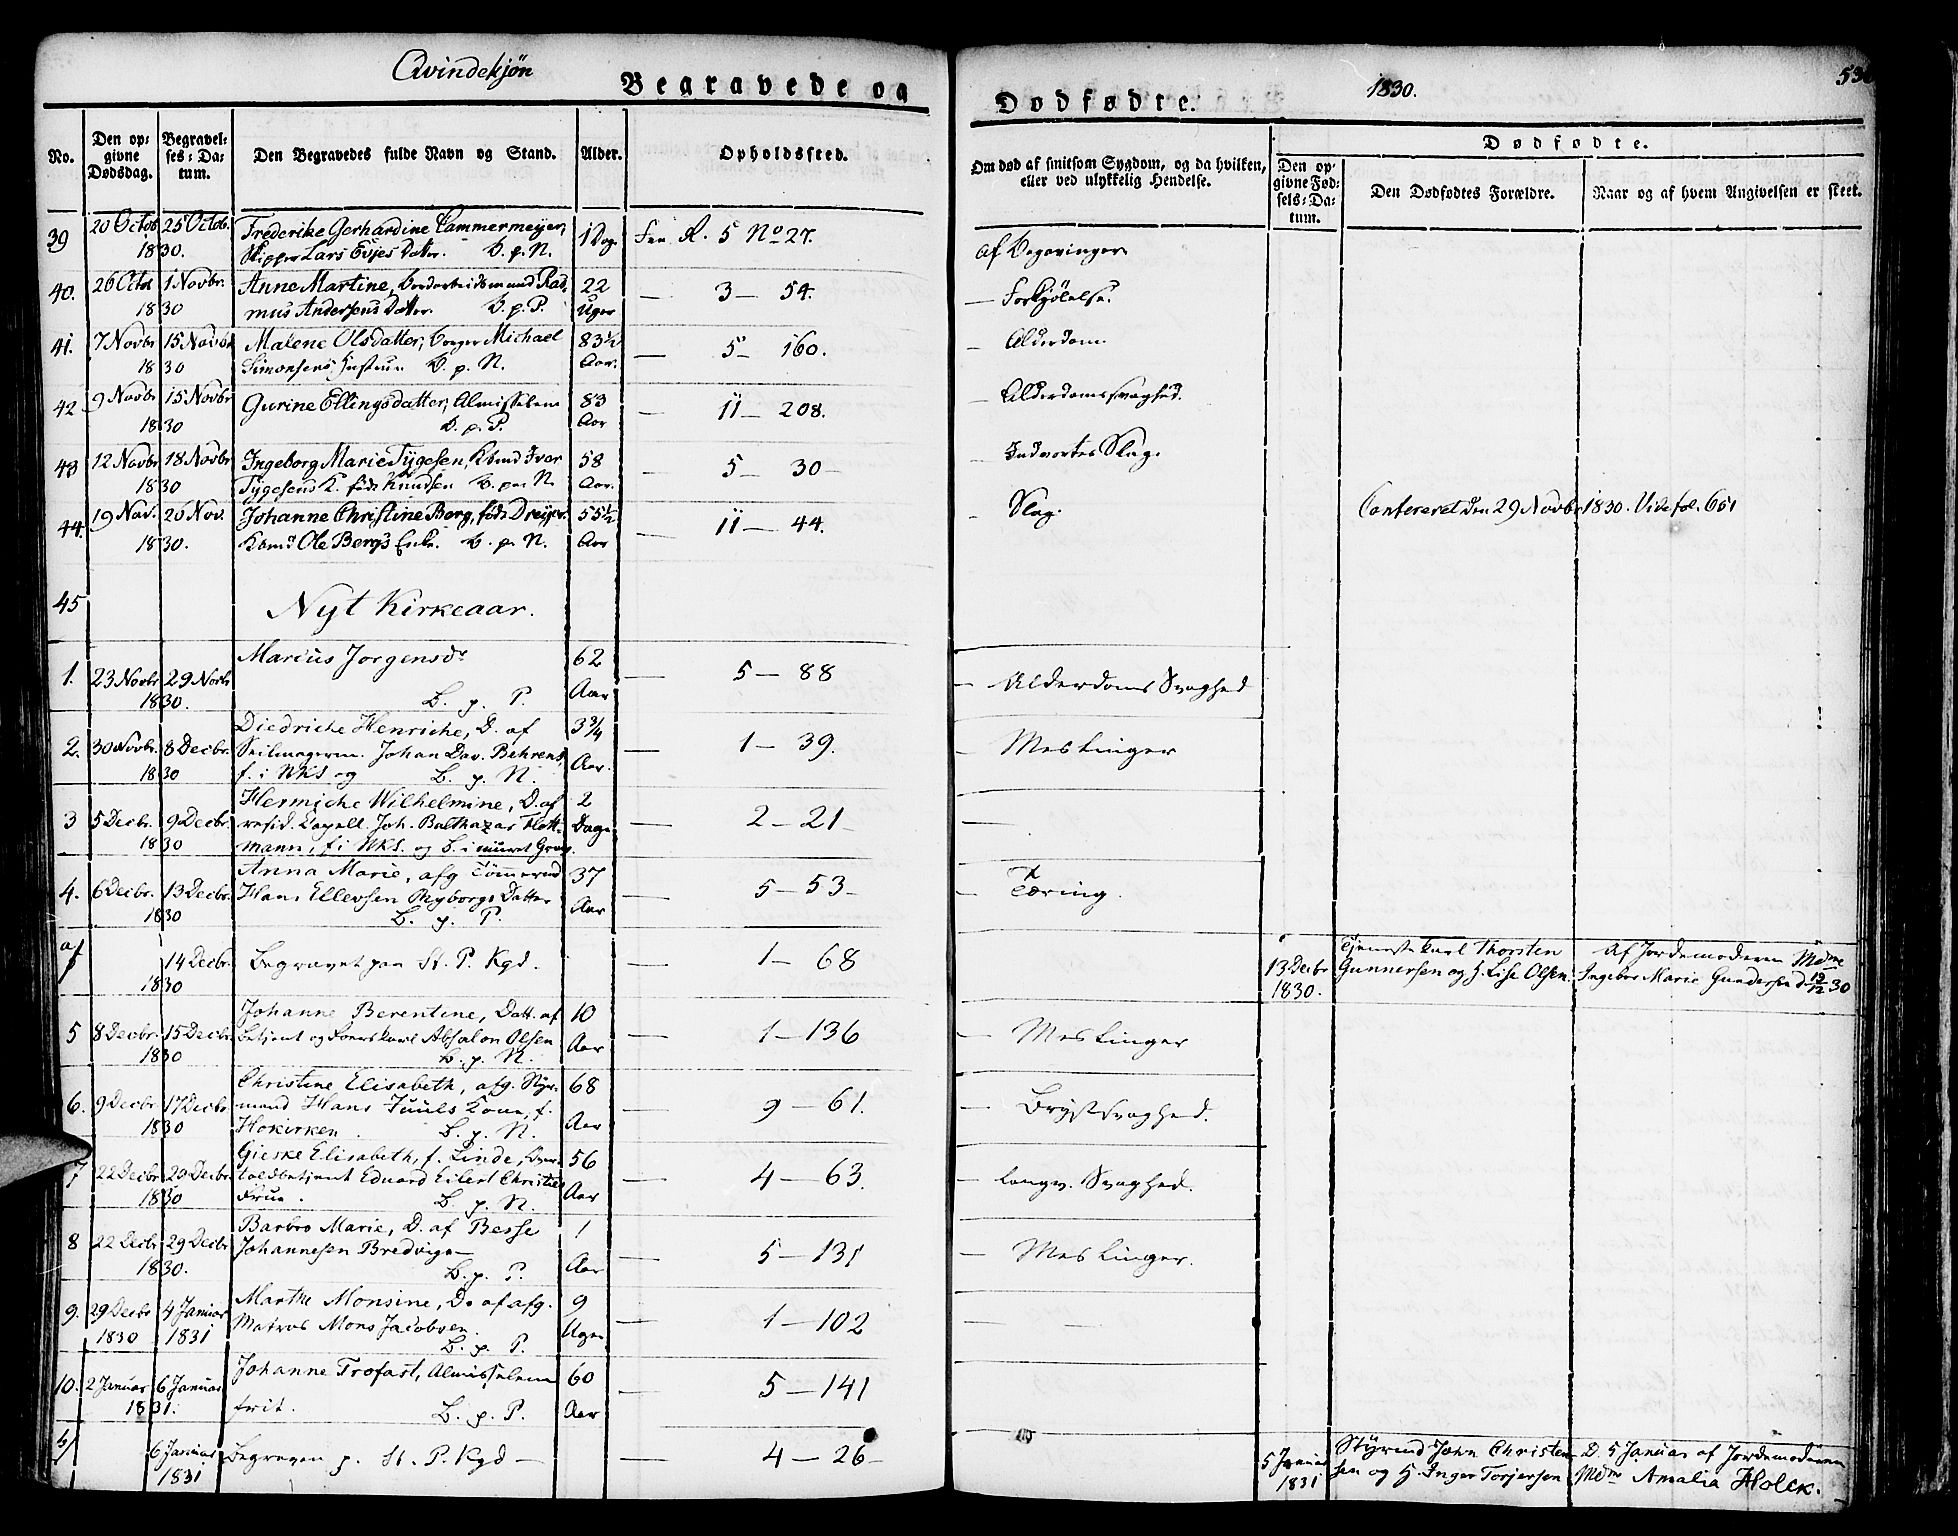 Qvindekjøn
Begravede og
No.
Den opgivne Dødsdag.
Begravelses-Datum.
Den Begravedes fulde Navn og Stand.
Alder.
Opholdssted.
39 20 Octob 25 Octob. Frederike Gerhardine Cammermeÿer, 1 Dag R. 5 No 27.
1830. Skipper Lars Evjes Datter. B. p. N.
40. 26 Octob 1 Novbr. Anne Martine, Bordarbeidsmand Ras- 22 — 3 — 54.
1830 mus Andersens Datter. B. p. P. Uger
41. 7 Novbr 15 Novbr Malene Olsdatter, borger Michael 83½ — 5 — 160.
1830 Simonsens Hustrue B. p. N. Aar.
42 9 Novbr 15 Novbr Gurine Ellingsdatter, Almisselem 83 — 11 — 208.
1830 B. p. P. Aar
43 12 Novbr 18 Novbr Ingeborg Marie Tÿgesen, Kbmd Iver 58 — 5 — 30 —
1830 Tÿgesens K. født Knudsen B. p. N. Aar.
44. 19 Nov. 26 Nov. Johanne Christine Berg, født Dreÿer. 55½ — 11 — 44.
1830. Kbmd Ole Bergs Enke. B. p. N. Aar
45 Nyt Kirkeaar.
1. 23 Novbr 29 Novbr Marius Jorgensdr 62 — 5 — 88
1830. B. p. P. Aar
2. 30 Novbr. 8 Decbr. Diedriche Henriche, D. af 3¾ — 1 — 39.
Seilmagerm. Johan Dav. Behrens, Aar.
1830 f. i NKS og B. p. N.
3 5 Decbr. 9 Decbr. Hermiche Wilhelmine, D. af 2 — 2 — 21 —
resid. Capell. Joh. Balthazar Flott- Dage
1830 mann, f. i NKS. og B. i muret Grav.
4. 6 Decbr. 13 Decbr. Anna Marie, afg Tømmermd 37 — 5 — 53 —
Hans Ellevsen Myborgs Datter Aar
1830 B. p. P.
a/ 14 Decbr. Begravet paa St. P. Kgd. — 1 — 68
1830
5 8 Decbr. 15 Decbr. Johanne Berentine, Datt. af 10 — 1 — 136
Betjent og Absalon Olsen Aar
1830 B. p. N.
6. 9 Decbr 17 Decbr Christine Elisabeth, afg. Styr- 68 — 9 — 61.
mand Hans Juuls Kone, f. Aar
1830 Hokirken. B. p. N.
7 22 Decbr 29 Decbr. Gieske Elisabeth, f. Linde, Over- 56 — 4 — 63.
toldbetjent Eduard Eilert Christies Aar
1830 Frue. B. p. N.
8 22 Decbr 29 Decbr Barbro Marie, D. af Besse 1 — 5 — 131
Johannesen Bredvigs —
1830. B. p. P. Aar
9. 29 Decbr 4 Januar Marthe Monsine, D. af afg. 9 — 1 — 102
1830 1831 Matros Mons Jacobsen. Uger
B. p. P.
10. 2 Januar 6 Januar Johanne Trofast, Almisselem 60 — 5 — 141
1831. frit. B. p. P. Aar
b/ 6 Januar Begraven p. St. P. Kgd — — 4 — 26 —
1831
Dødfødte.
1830.
Om død af smitsom Sygdom, og da hvilken,
eller ved ulykkelig Hendelse.
Dødfødte.
Den opgivne Fødsels-Datum.
Den Dødfødtes Forældre.
Naar og af hvem Angivelsen er skeet.
af Begavinger
— Forkjølelse.
— Alderdom.
— Alderdomssvaghed.
— Indvortes Slag.
— Slag. Confereret den 29 Novbr 1830. Vide fol. 651
— Alderdoms Svaghed
— Meslinger
—
— Tæring.
13 Decbr Tjenestekarl Thorsten Af Jordemoderen Mdme
1830. Gunnersen og H. Lise Olsen. Ingebor Marie Gundersen d 19/12 30
— Meslinger
— Brystsvaghed.
— langv. Svaghed.
— Meslinger.
—
5 Januar Styrmd John Christen- D. 5 Januar af Jordemoderen
1831 sen og H. Inger Torjersen Mdme Amalia Holck.